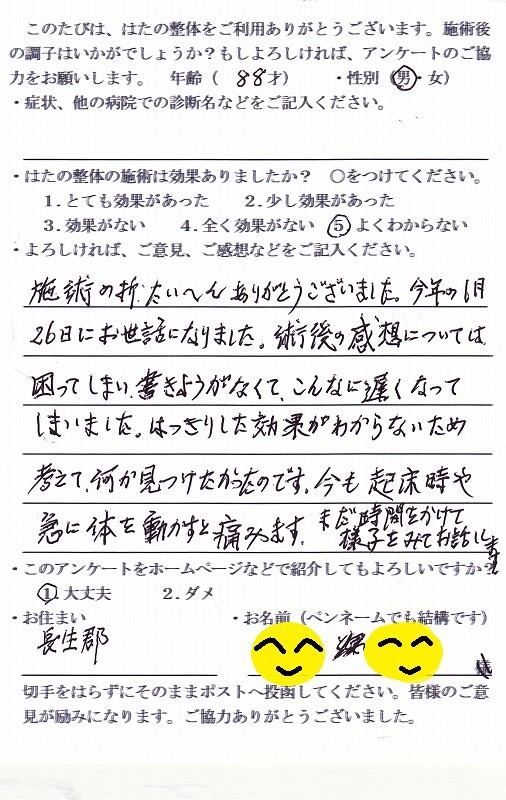 このたびは、はたの整体をご利用ありがとうございます。施術後
の調子はいかがでしょうか？もしよろしければ、アンケートのご協
力をお願いします。 年齢（ 88才） ・性別（男・女）
・症状、他の病院での診断名などをご記入ください。
・はたの整体の施術は効果ありましたか？ ○をつけてください。
1．とても効果があった 2．少し効果があった
3．効果がない 4．全く効果がない 5 よくわからない
・よろしければ、ご意見、ご感想などをご記入ください。
施術の折、たいへんありがとうございました。今年の1月
26日にお世話になりました。術後の感想については
困ってしまい、書きようがなくて、こんなに遅くなって
しまいました。はっきりした効果がわからないため
考えて、何か見つけたかったのです。今も起床時や
急に体を動かすと痛みます。まだ時間をかけて
様子をみてお話します
・このアンケートをホームページなどで紹介してもよろしいですか？
1.大丈夫 2.ダメ
・お住まい ・お名前（ペンネームでも結構です）
長生郡
様
切手をはらずにそのままポストへ投函してください。皆様のご意
見が励みになります。ご協力ありがとうございました。